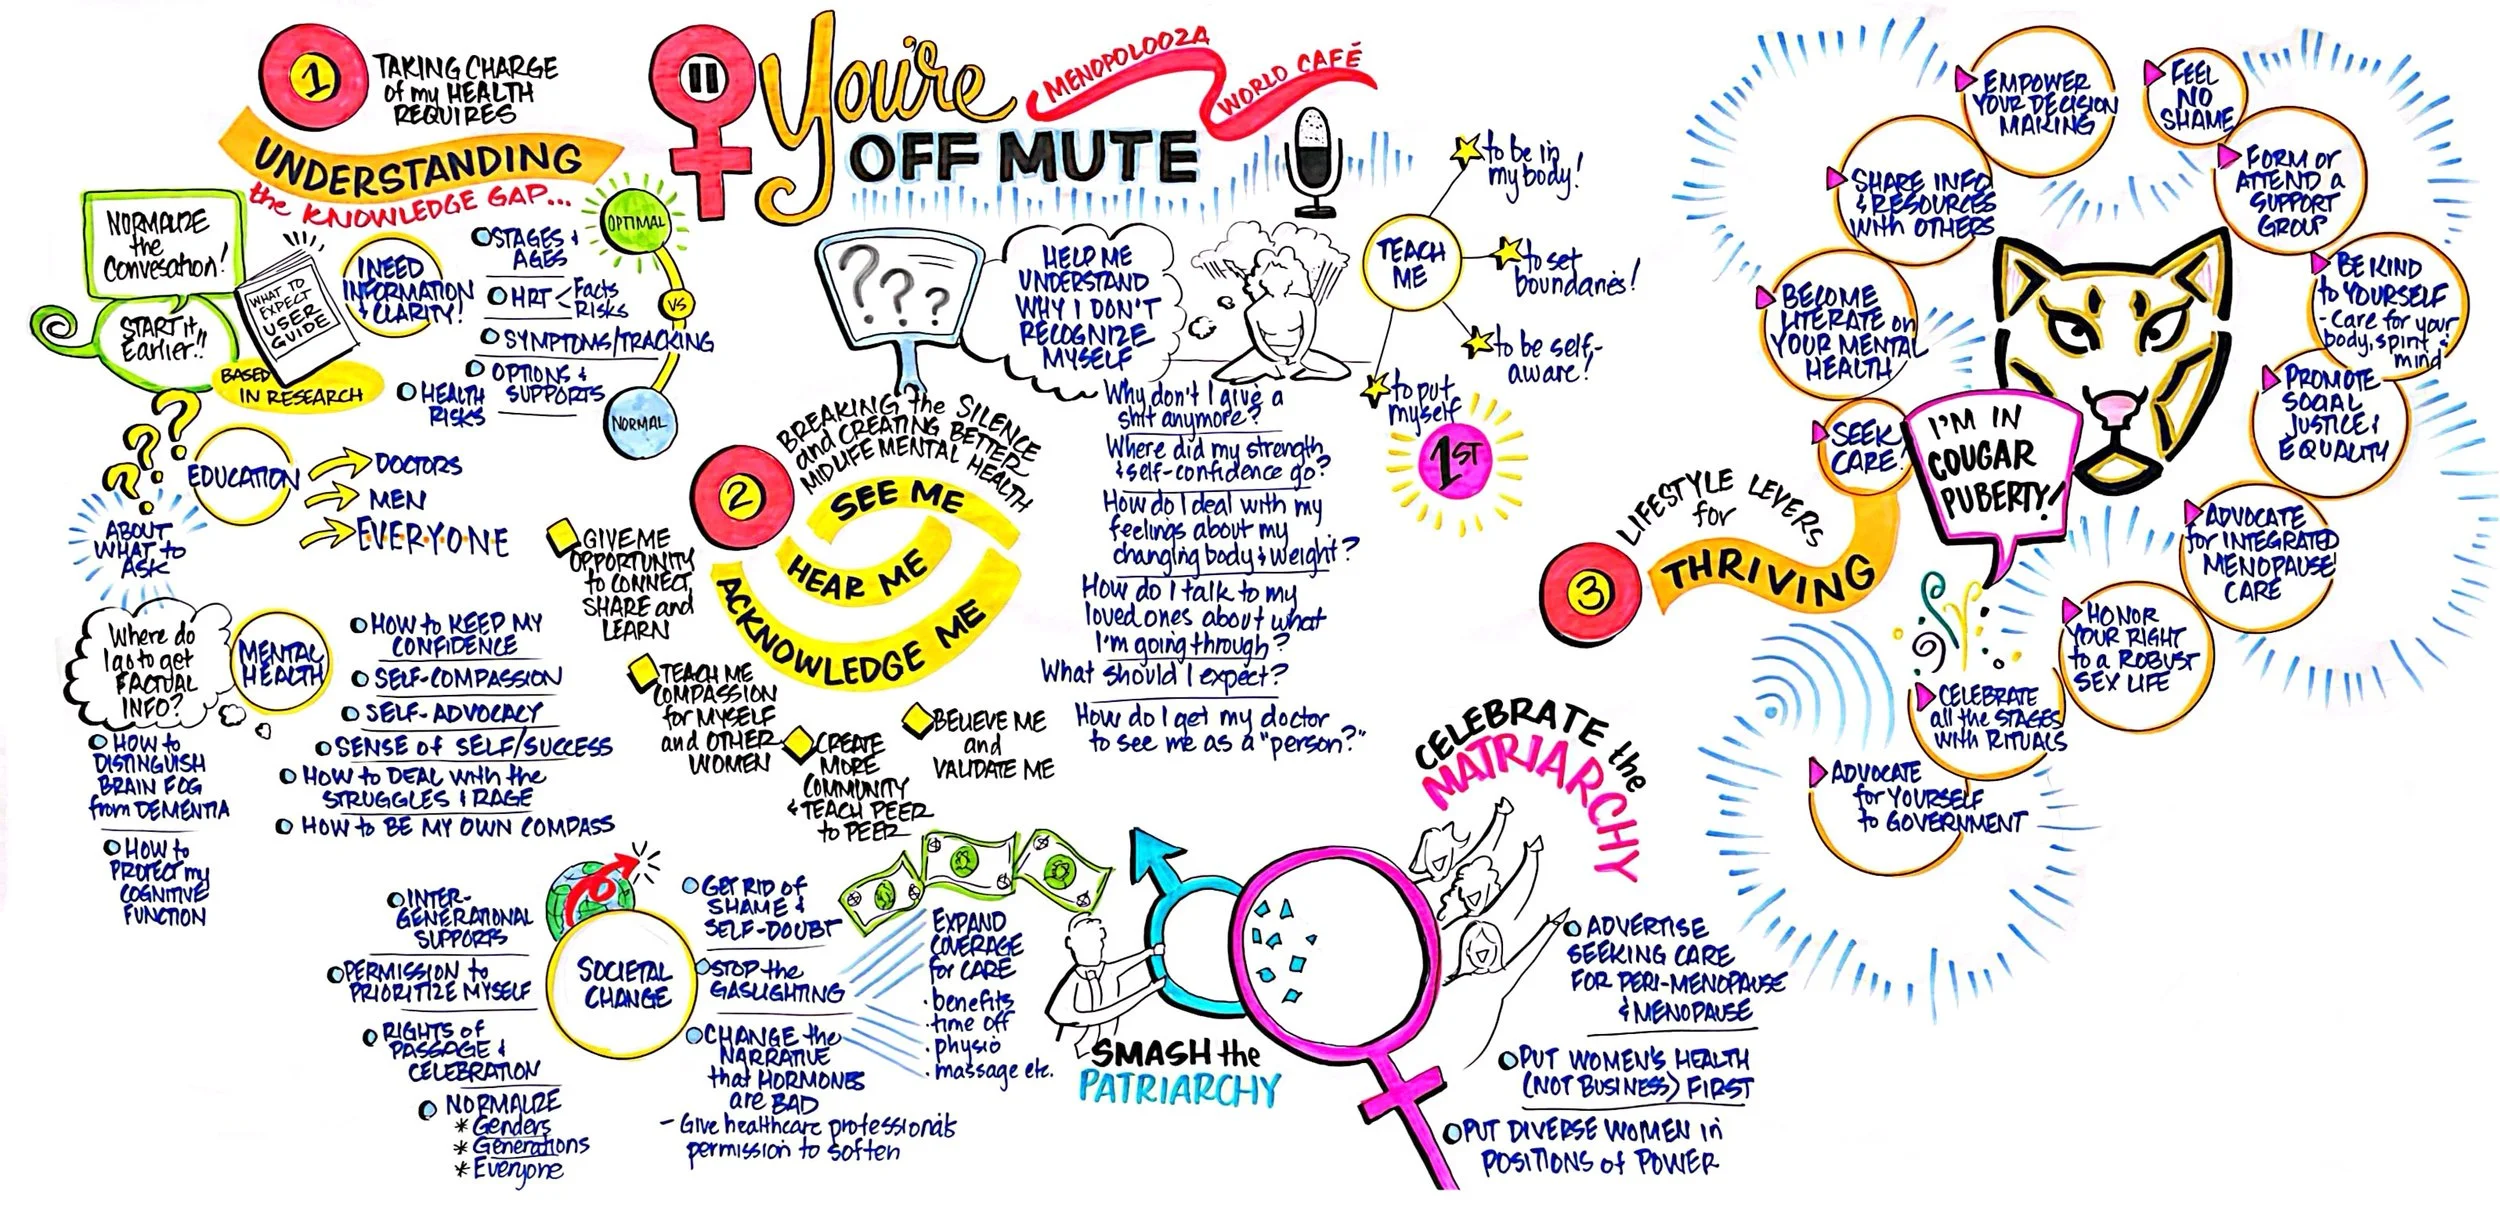 You're
OFF MUTE
MENOPOLOOZA
WORLD CAFÉ
1
TAKING CHARGE
of my HEALTH
REQUIRES
UNDERSTANDING
the KNOWLEDGE GAP...
NORMALIZE
the
Convesation!
START it
Earlier!!
WHAT TO
EXPECT
USER
GUIDE
BASED
IN RESEARCH
I NEED
INFORMATION
& CLARITY!
STAGES &
AGES
HRT < Facts
Risks
SYMPTOMS/TRACKING
OPTIONS &
SUPPORTS
HEALTH
RISKS
OPTIMAL
VS
NORMAL
???
EDUCATION
DOCTORS
MEN
EVERYONE
ABOUT
WHAT to
ASK
Where do
I go to get
FACTUAL
INFO?
MENTAL
HEALTH
HOW to KEEP MY
CONFIDENCE
SELF-COMPASSION
SELF-ADVOCACY
SENSE of SELF/SUCCESS
HOW to DEAL with the
STRUGGLES & RAGE
HOW to BE MY OWN COMPASS
HOW to
DISTINGUISH
BRAIN FOG
from DEMENTIA
HOW to
PROTECT my
COGNITIVE
FUNCTION
SOCIETAL
CHANGE
INTER-
GENERATIONAL
SUPPORTS
PERMISSION to
PRIORITIZE MYSELF
RIGHTS of
PASSAGE &
CELEBRATION
NORMALIZE
* Genders
* Generations
* Everyone
GET RID of
SHAME &
SELF-DOUBT
STOP the
GASLIGHTING
CHANGE the
NARRATIVE
that HORMONES
are BAD
- Give healthcare professionals
permission to soften
EXPAND
COVERAGE
for CARE
. benefits
. time off
. physio
. massage etc.
2
BREAKING the SILENCE
and CREATING BETTER
MIDLIFE MENTAL HEALTH
SEE ME
HEAR ME
ACKNOWLEDGE ME
GIVE ME
OPPORTUNITY
to CONNECT,
SHARE and
LEARN
TEACH ME
COMPASSION
for MYSELF
and OTHER
WOMEN
CREATE
MORE
COMMUNITY
& TEACH PEER
to PEER
BELIEVE ME
and
VALIDATE ME
???
HELP ME
UNDERSTAND
WHY I DON'T
RECOGNIZE
MYSELF
Why don't I give a
shit anymore?
Where did my strength
& self-confidence go?
How do I deal with my
feelings about my
changing body & weight?
How do I talk to my
loved ones about what
I'm going through?
What should I expect?
How do I get my doctor
to see me as a "person?"
TEACH
ME
to be in
my body!
to set
boundaries!
to be self-
aware!
to put
myself
1ST
SMASH the
PATRIARCHY
CELEBRATE the
MATRIARCHY
ADVERTISE
SEEKING CARE
FOR PERI-MENOPAUSE
& MENOPAUSE
PUT WOMEN'S HEALTH
(NOT BUSINESS) FIRST
PUT DIVERSE WOMEN in
POSITIONS of POWER
3
LIFESTYLE LEVERS
for
THRIVING
I'M IN
COUGAR
PUBERTY!
SEEK
CARE!
BECOME
LITERATE on
YOUR MENTAL
HEALTH
SHARE INFO
& RESOURCES
with OTHERS
EMPOWER
YOUR DECISION
MAKING
FEEL
NO
SHAME
FORM or
ATTEND a
SUPPORT
GROUP
BE KIND
to YOURSELF
- Care for your
body, spirit &
mind
PROMOTE
SOCIAL
JUSTICE &
EQUALITY
ADVOCATE
for INTEGRATED
MENOPAUSE
CARE
HONOR
YOUR RIGHT
to a ROBUST
SEX LIFE
CELEBRATE
all the STAGES
with RITUALS
ADVOCATE
for YOURSELF
to GOVERNMENT